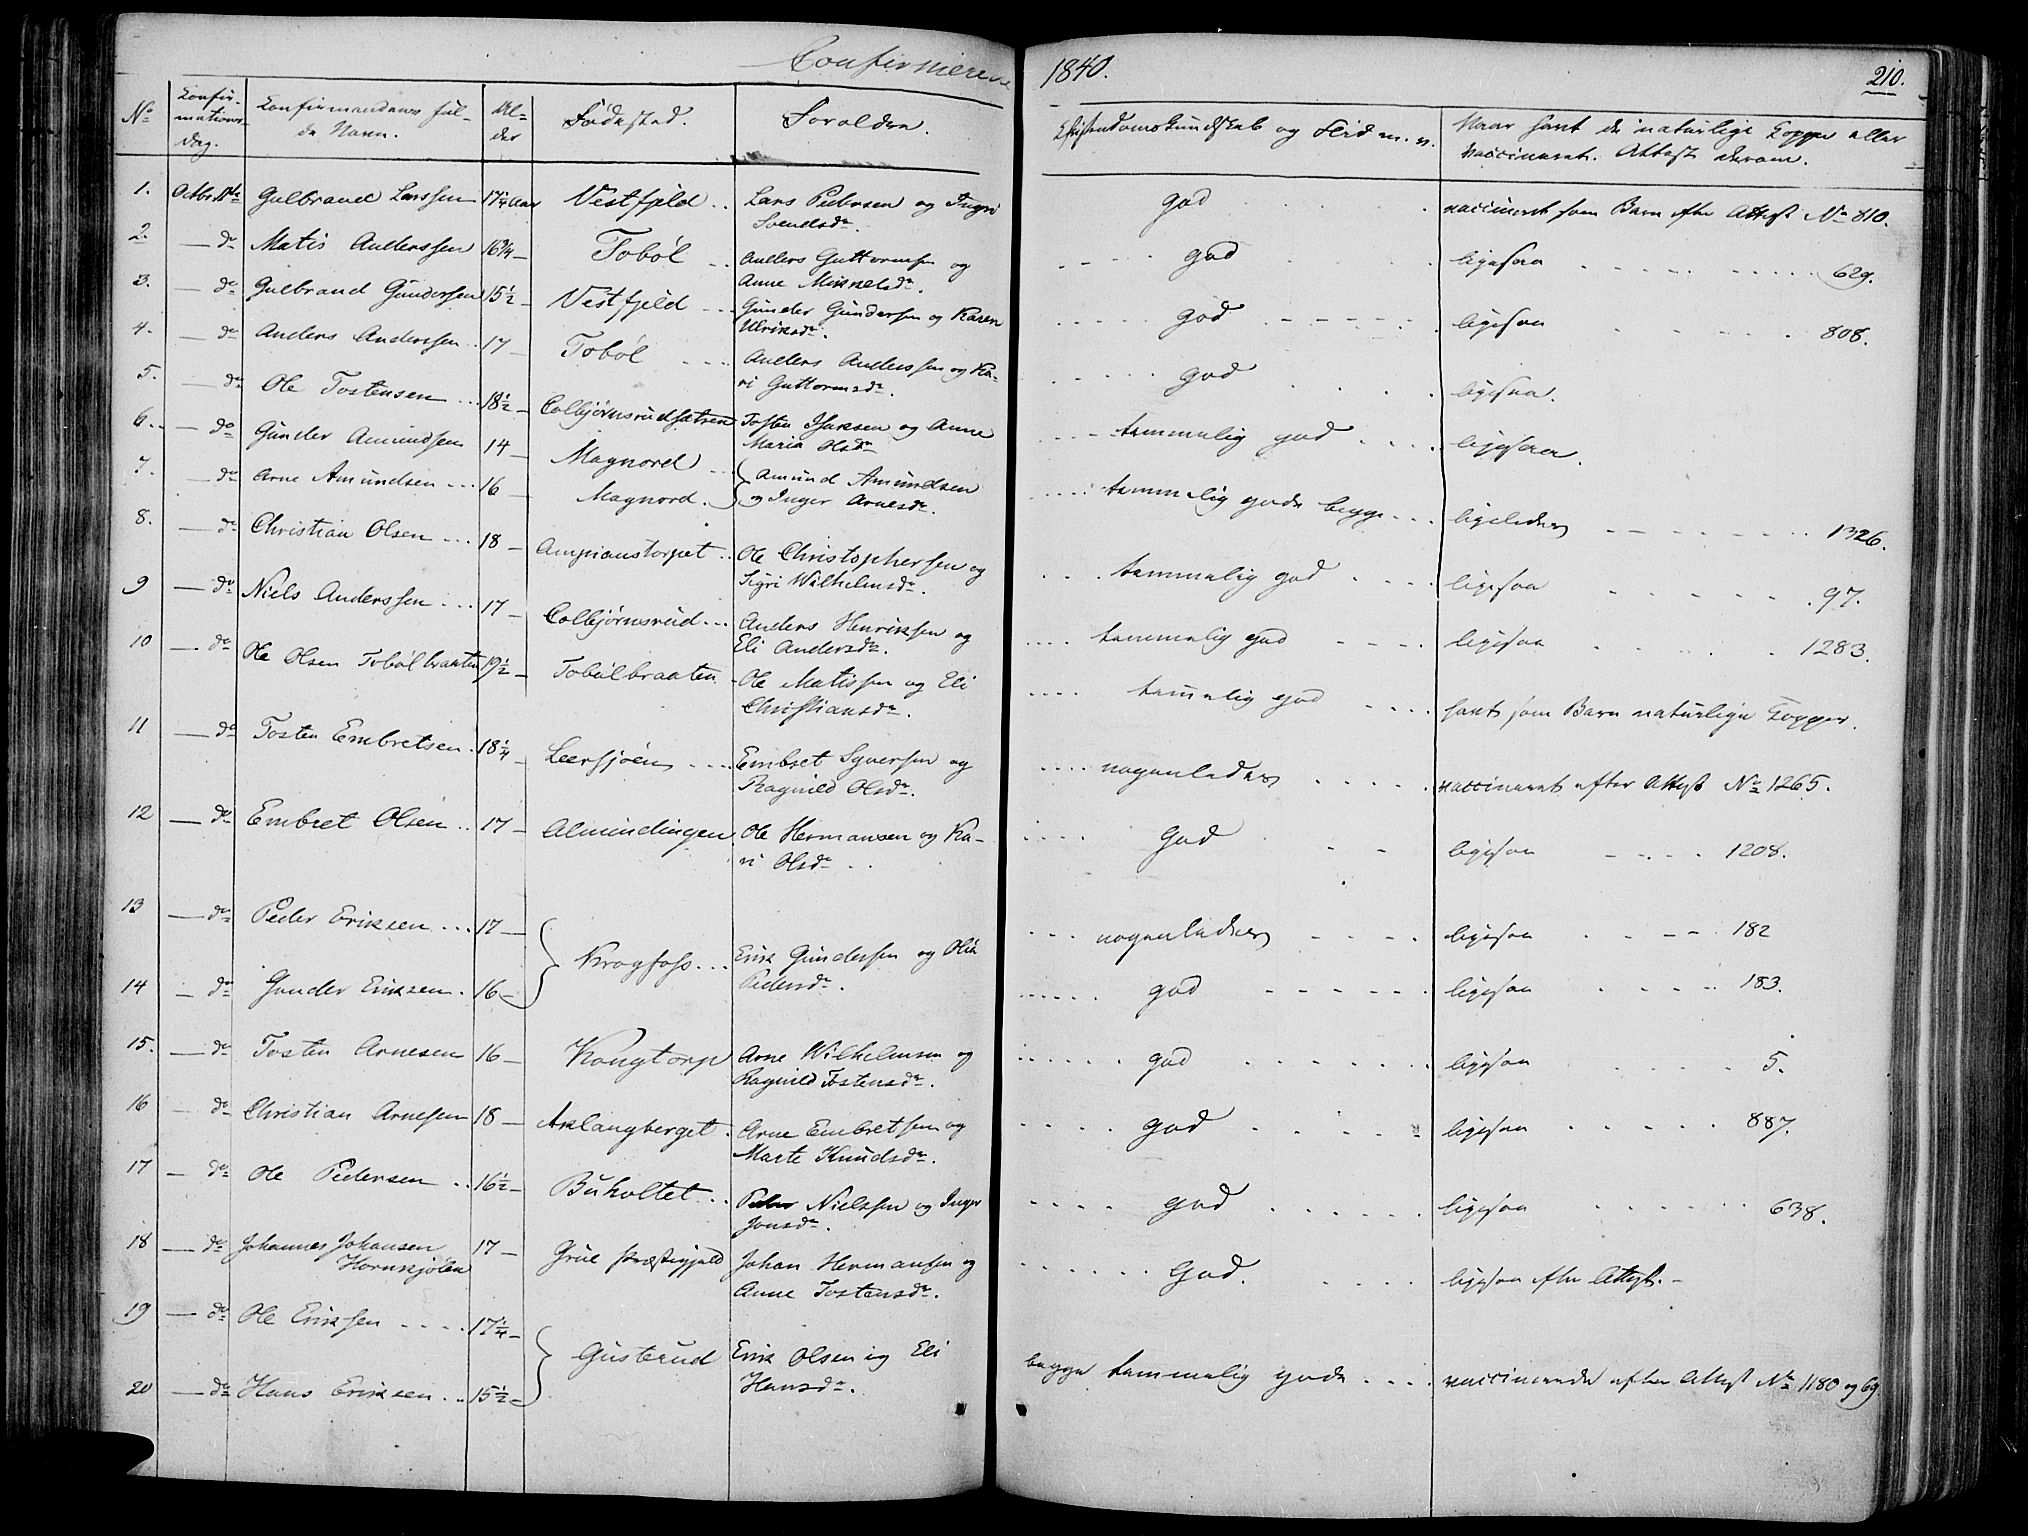 Confirmerede 1840.
210.
No
Confir-
mations-
dag.
Confirmandens ful-
de Navn.
Al-
der
Fødested.
Forældre.
Christendomskundskab og Flid m. v.
Naar havt de naturlige Kopper eller
vaccineret. Attest derom.
1. Octbr 11te Gulbrand Larssen 17¼ Aar Vestfjeld .. Lars Pedersen og Ingri god vaccineret som Barn efter Attest No 810.
Svendsdr.
2. — do Matis Anderssen 16¾ — Tobøl .. Anders Guttormsen og god ligesaa 629.
Anne Mikkelsdr.
3. — do Gulbrand Gundersen 15½ — Vestfjeld ... Gunder Gundersen og Karen god ligesaa 808.
Ulriksdr.
4. — do Anders Anderssen .. 17 — Tobøl .... Anders Anderssen og Ka- god ligesaa.
ri Guttormsdr.
5. — do Ole Tostensen ... 18½ — Colbjørnsrudsætren Tosten Isaksen og Anne temmelig god ligesaa.
Maria Olsdr
6. — do Gunder Amundsen 14 — Magnord ... Amund Amundsen temmelig gode begge ligeledes 1326.
7. — do Arne Amundsen ... 16 — Magnord. og Inger Arnesdr.
8. — do Christian Olsen ... 18 — Ampianstorpet .. Ole Christophersen og temmelig god ligesaa 97.
Sigri Wilhelmsdr.
9 — do Niels Anderssen ... 17 — Colbjørnsrud ... Anders Henriksen og temmelig god ligesaa 1283.
Eli Andersdr.
10 — do Ole Olsen Tobølbraaten 19½ — Tobølbraaten Ole Matissen og Eli temmelig god havt som Barn naturlige Kopper.
Christiansdr.
11 — do Tosten Embretsen . 18¼ — Leersjøen .... Embret Syversen og nogenledes vaccineret efter Attest No 1265.
Ragnild Olsdr.
12 — do Embret Olsen .. 17 — Almindingen Ole Hermansen og Ka- God ligesaa 1208.
ri Olsdr ..
13 — do Peder Eriksen ... 17 — Krogfoss ... Erik Gundersen og Olia nogenledes ligesaa 182
14 — do Gunder Eriksen . 16 — Pedersdr. god ligesaa 183.
15. — do Tosten Arnesen 16 — Kongtorp Arne Wilhelmsen og god ligesaa 5.
Ragnild Tostensdr.
16 — do Christian Arnesen 18 — Aklangberget . Arne Embretsen og god ligesaa 887.
Marte Knudsdr.
17 — do Ole Pedersen .. 16½ — Buholtet ... Peder Nielssen og Inger god ligesaa 638.
Jonsdr.
18 — do Johannes Johansen 17 — Grue Præstegjeld Johan Hermansen og God. ligesaa efter Attest. —
Hornkjølen Anne Tostensdr.
19 — do Ole Erikssen .... 17¼ — Gusterud Erik Olsen og Eli begge temmelig gode vaccinerede efter Attest No 1180 og 69
20 — do Hans Eriksen .. 15½ — Hansdr.